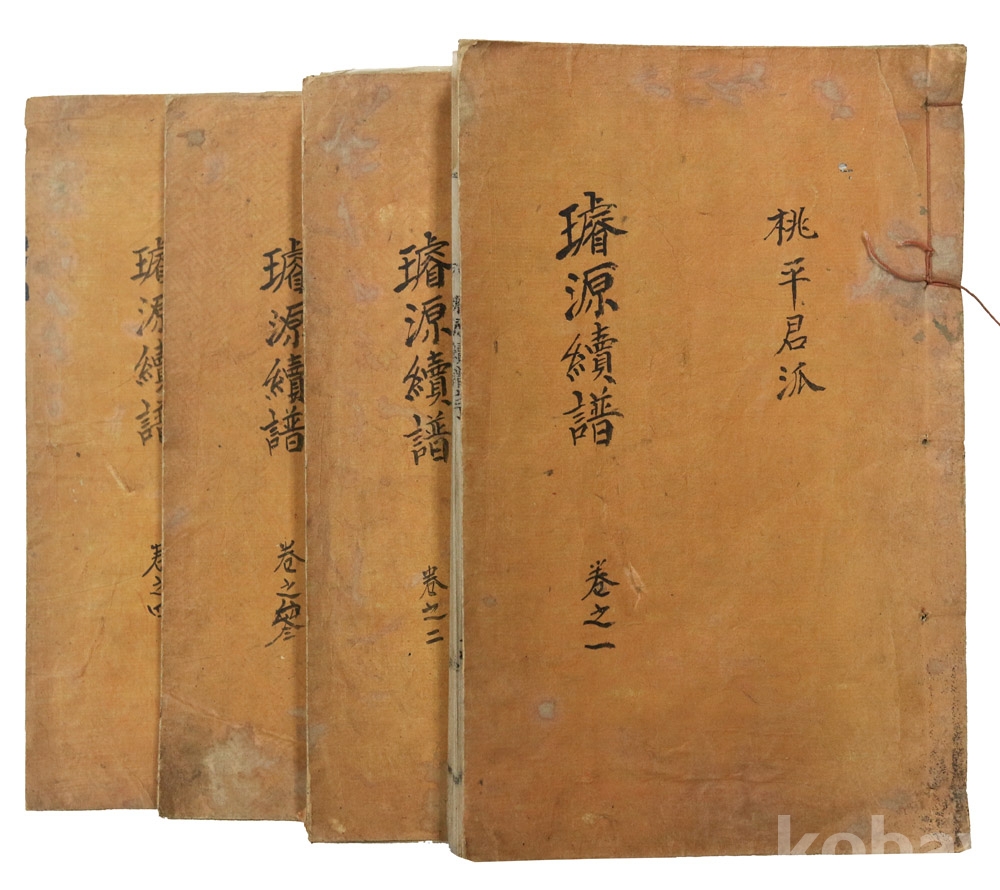 桃平君派
璿源續譜 卷之一
璿源續譜 卷之二
璿源續譜 卷之參
璿源續譜 卷之四
koba